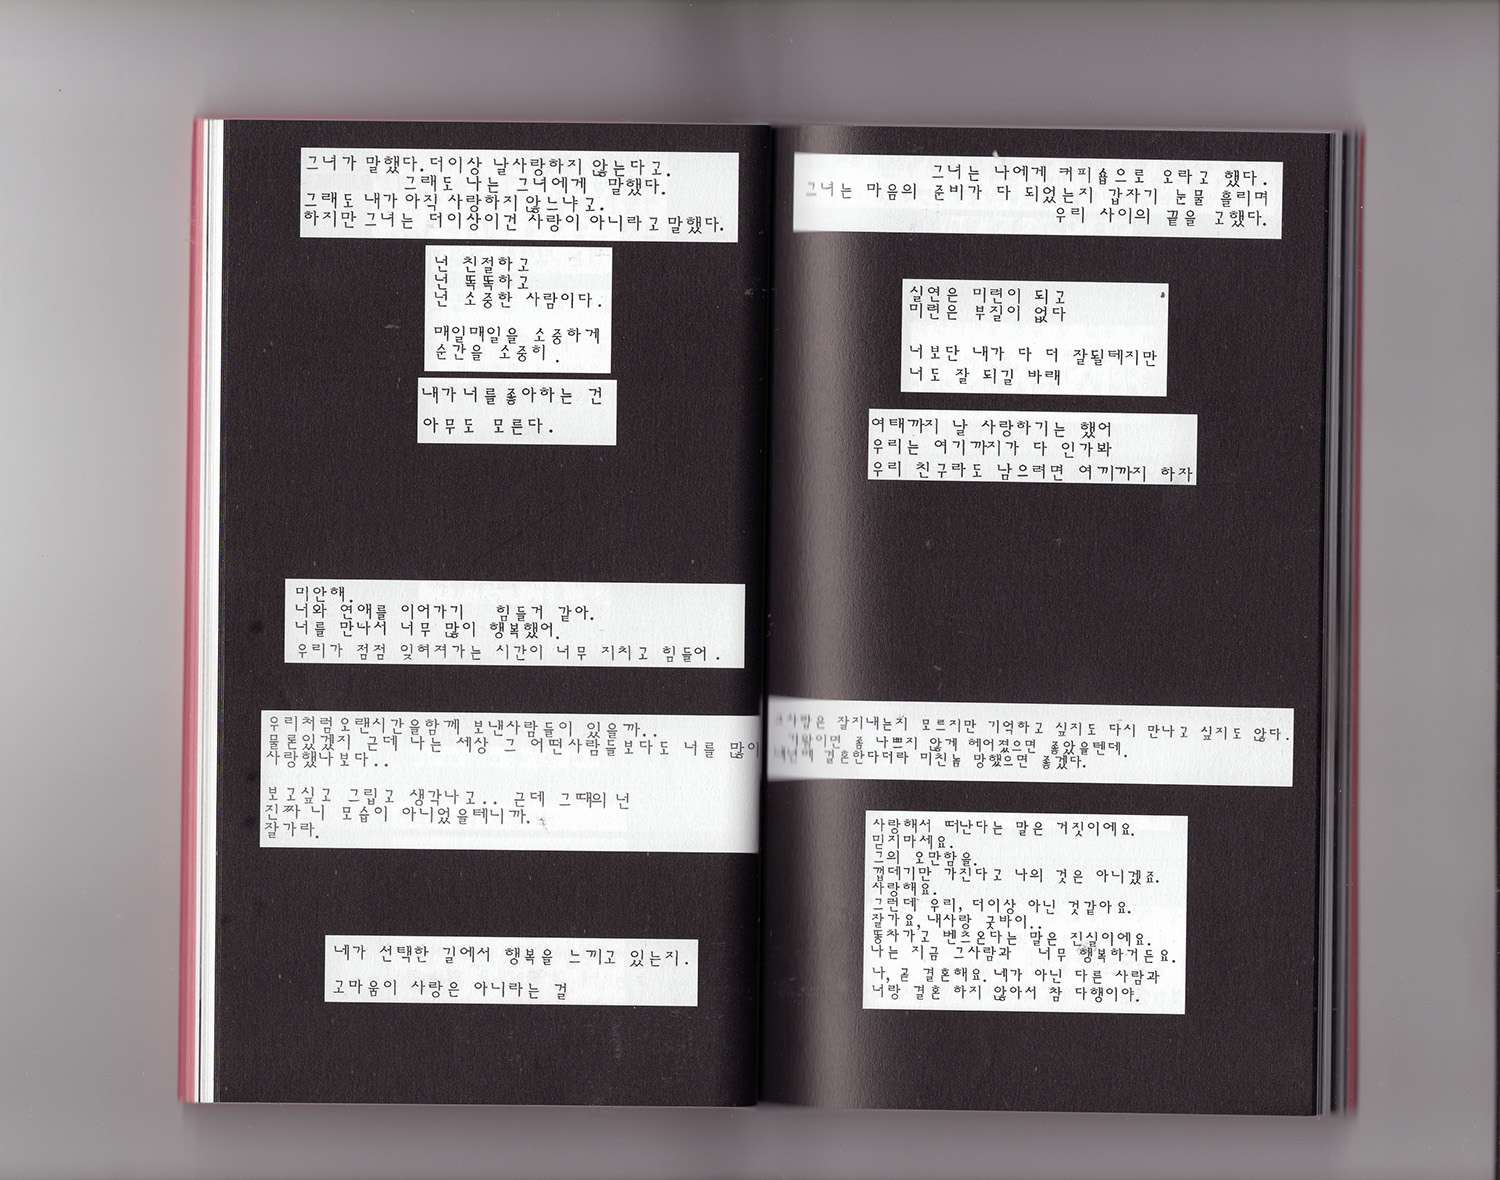 그녀가 말했다. 더이상 날사랑하지 않는다고.
그래도 나는 그녀에게 말했다.
그래도 내가 아직 사랑하지 않느냐고.
하지만 그녀는 더이상이건 사랑이 아니라고 말했다.
넌 친절하고
넌 똑똑하고
넌 소중한 사람이다.
매일매일을 소중하게
순간을 소중히.
내가 너를 좋아하는 건
아무도 모른다.
미안해.
너와 연애를 이어가기 힘들거 같아.
너를 만나서 너무 많이 행복했어.
우리가 점점 잊혀져가는 시간이 너무 지치고 힘들어.
우리처럼오랜시간을함께 보낸사람들이 있을까..
물론있겠지 근데 나는 세상 그 어떤사람들보다도 너를 많이
사랑했나보다..
보고싶고 그립고 생각나고.. 근데 그때의 넌
진짜 니 모습이 아니었을테니까.
잘가라.
네가 선택한 길에서 행복을 느끼고 있는지.
고마움이 사랑은 아니라는 걸
그녀는 나에게 커피숍으로 오라고 했다.
그녀는 마음의 준비가 다 되었는지 갑자기 눈물 흘리며
우리 사이의 끝을 고했다.
실연은 미련이 되고
미련은 부질이 없다
너보단 내가 다 더 잘될테지만
너도 잘 되길 바래
여태까지 날 사랑하기는 했어
우리는 여기까지가 다 인가봐
우리 친구라도 남으려면 여끼까지 하자
잘지내는지 모르지만 기억하고 싶지도 다시 만나고 싶지도 않다.
기왕이면 좀 나쁘지 않게 헤어졌으면 좋았을텐데.
결혼한다더라 미친놈 망했으면 좋겠다.
사랑해서 떠난다는 말은 거짓이에요.
믿지마세요.
그의 오만함을.
껍데기만 가진다고 나의 것은 아니겠죠.
사랑해요.
그런데 우리, 더이상 아닌 것같아요.
잘가요, 내사랑 굿바이..
똥차가고 벤츠온다는 말은 진실이에요.
나는 지금 그사람과 너무 행복하거든요.
나, 곧 결혼해요. 네가 아닌 다른 사람과
너랑 결혼 하지 않아서 참 다행이야.